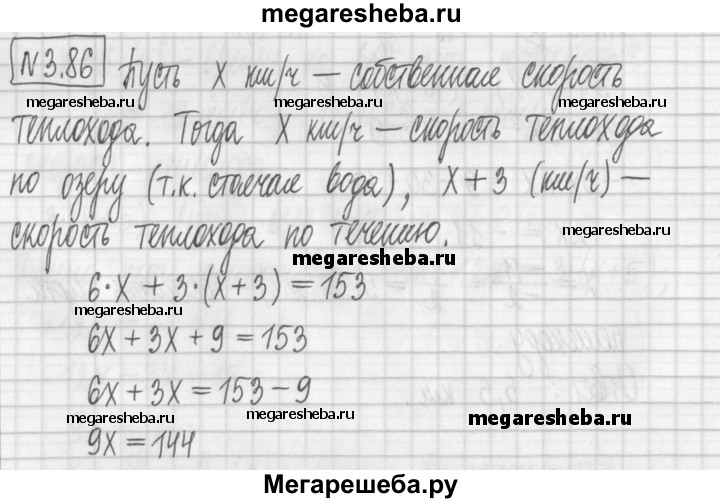 megaresheba.ru
N3.86 Пусть x км/ч — собственная скорость
megaresheba.ru megaresheba.ru megaresheba.ru
теплохода. Тогда x км/ч — скорость теплохода
по озеру (т.к. стоячая вода), x+3 (км/ч) —
megaresheba.ru
скорость теплохода по течению.
megaresheba.ru
6·x + 3·(x+3) = 153
megaresheba.ru
6x + 3x + 9 = 153
6x + 3x = 153 - 9
megaresheba.ru megaresheba.ru megaresheba.ru
9x = 144
Мегарешеба.ру